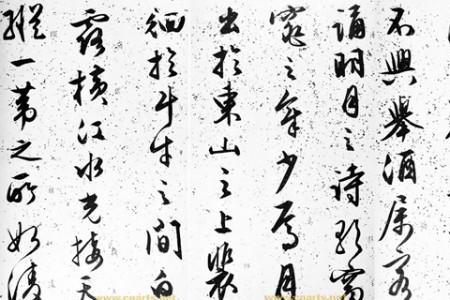 不興舉酒屬客
誦明月之詩歌窈
窕之章少焉月
出於東山之上裴
徊於斗牛之間白
露橫江水光接天
縱一葦之所如凌